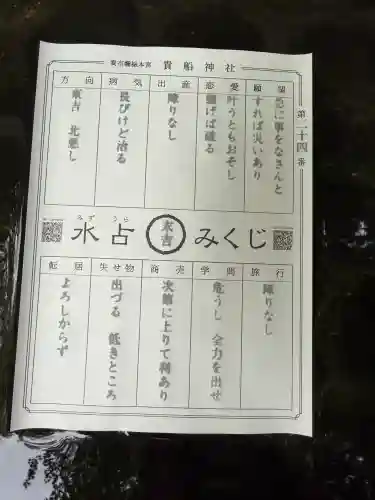 貴布禰総本宮 貴船神社
第二十四番
願望
急に事をなさんと
すれば災いあり
恋愛
叶うともおそし
騒げば破る
出産
障りなし
病気
長びけど治る
方向
東吉 北悪し
みず うら
水占
末吉
みくじ
旅行
障りなし
学問
危うし 全力を出せ
商売
次第に上りて利あり
失せ物
出づる 低きところ
転居
よろしからず